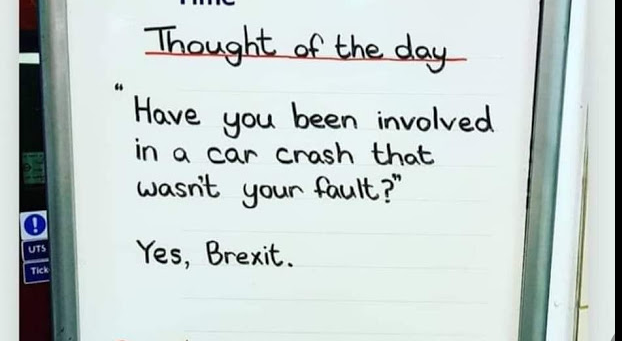 Thought of the day
"Have you been involved
in a car crash that
wasn't your fault?"
Yes, Brexit.
UTS